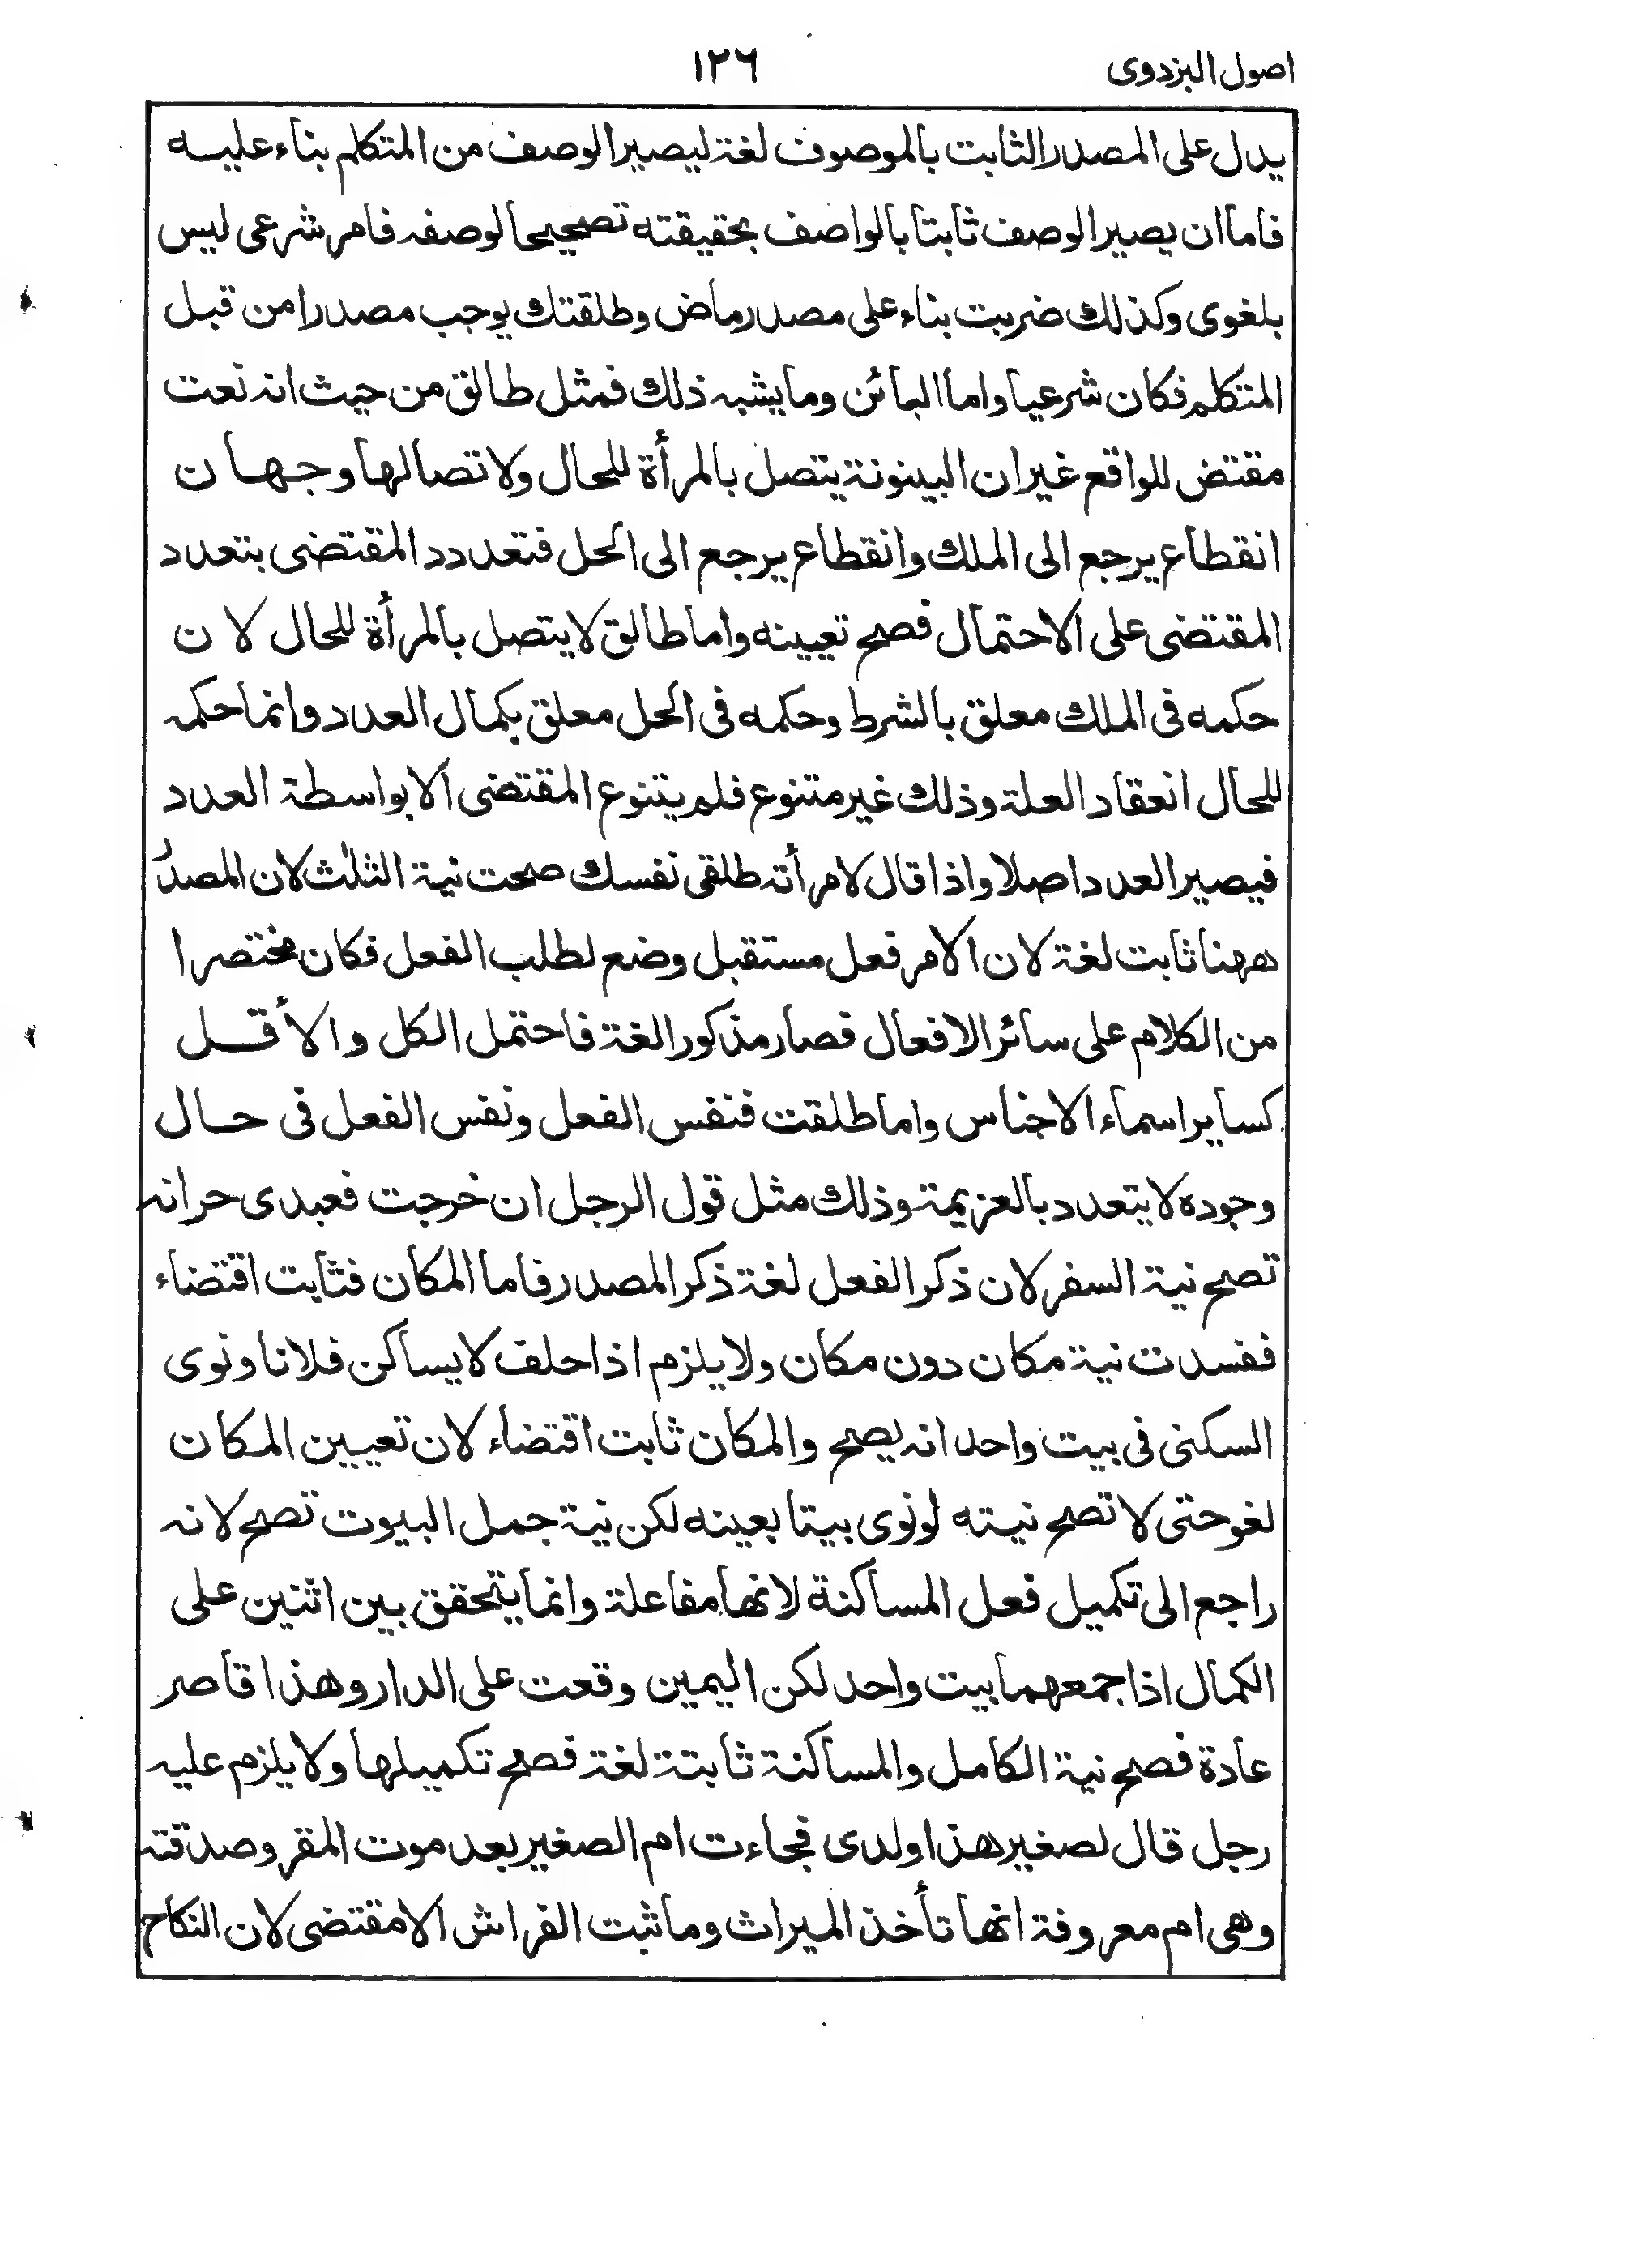 اصول البزدوى ١٢٦
يدل على المصدر الثابت بالموصوف لغة ليصير الوصف من المتكلم بناء عليه
فاما ان يصير الوصف ثابتا بالواصف بحقيقته تصحيحا لوصفه فامر شرعى ليس
بلغوى وكذلك ضربت بناء على مصدر ماض وطلقتك يوجب مصدرا من قبل
المتكلم فكان شرعيا واما البائن وما يشبه ذلك فمثل طالق من حيث انه نعت
مقتض للواقع غير ان البينونة يتصل بالمرأة للحال ولاتصالها وجهان
انقطاع يرجع الى الملك وانقطاع يرجع الى الحل فتعدد المقتضى بتعدد
المقتضى على الاحتمال فصح تعيينه واما طالق لا يتصل بالمرأة للحال لان
حكمه فى الملك معلق بالشرط وحكمه فى الحل معلق بكمال العدد وانما حكمه
للحال انعقاد العلة وذلك غير متنوع فلم يتنوع المقتضى الا بواسطة العدد
فيصير العدد اصلا واذا قال لامرأته طلقى نفسك صحت نية الثلث لان المصدر
ههنا ثابت لغة لان الامر فعل مستقبل وضع لطلب الفعل فكان مختصرا
من الكلام على سائر الافعال فصار مذكورا لغة فاحتمل الكل والأقل
كساير اسماء الاجناس واما طلقت فنفس الفعل ونفس الفعل فى حال
وجوده لا يتعدد بالعزيمة وذلك مثل قول الرجل ان خرجت فعبدى حر انه
تصح نية السفر لان ذكر الفعل لغة ذكر المصدر فاما المكان فثابت اقتضاء
ففسدت نية مكان دون مكان ولا يلزم اذا حلف لا يساكن فلانا ونوى
السكنى فى بيت واحد انه يصح والمكان ثابت اقتضاء لان تعيين المكان
لغو حتى لا تصح نيته لو نوى بيتا بعينه لكن نية جمل البيوت تصح لانه
راجع الى تكميل فعل المساكنة لانها مفاعلة وانما يتحقق بين اثنين على
الكمال اذا جمعهما بيت واحد لكن اليمين وقعت على الدار وهذا قاصر
عادة فصح نية الكامل والمساكنة ثابتة لغة فصح تكميلها ولا يلزم عليه
رجل قال لصغير هذا ولدى فجاءت ام الصغير بعد موت المقر وصدقته
وهى ام معروفة انها تأخذ الميراث وما ثبت الفراش الا مقتضى لان النكاح